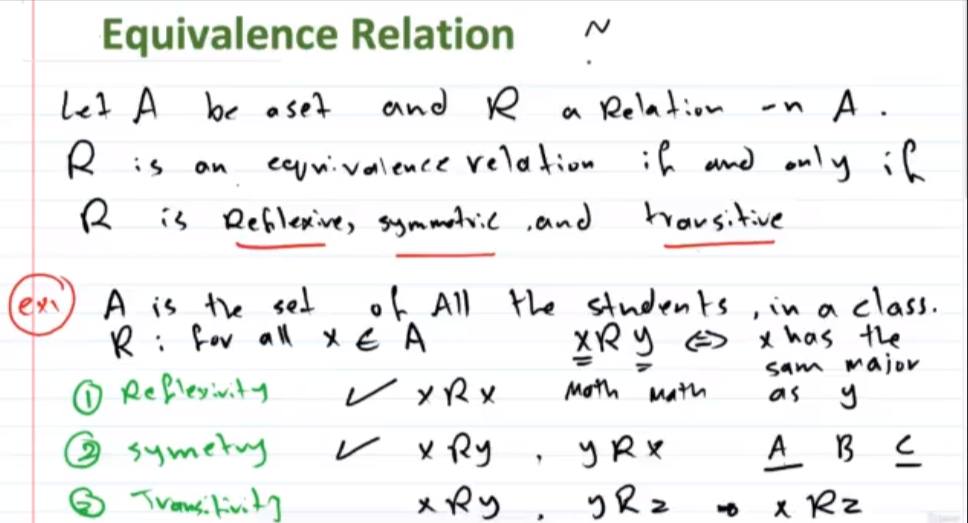 Equivalence Relation ~
Let A be a set and R a Relation on A.
R is an equivalence relation if and only if
R is Reflexive, symmetric, and transitive
ex1 A is the set of All the students, in a class.
R: for all x ∈ A xRy ⇔ x has the
sam major
① Reflexivity ✓ xRx Math Math as y
② symetry ✓ xRy, yRx A B C
③ Transitivity xRy, yRz → xRz